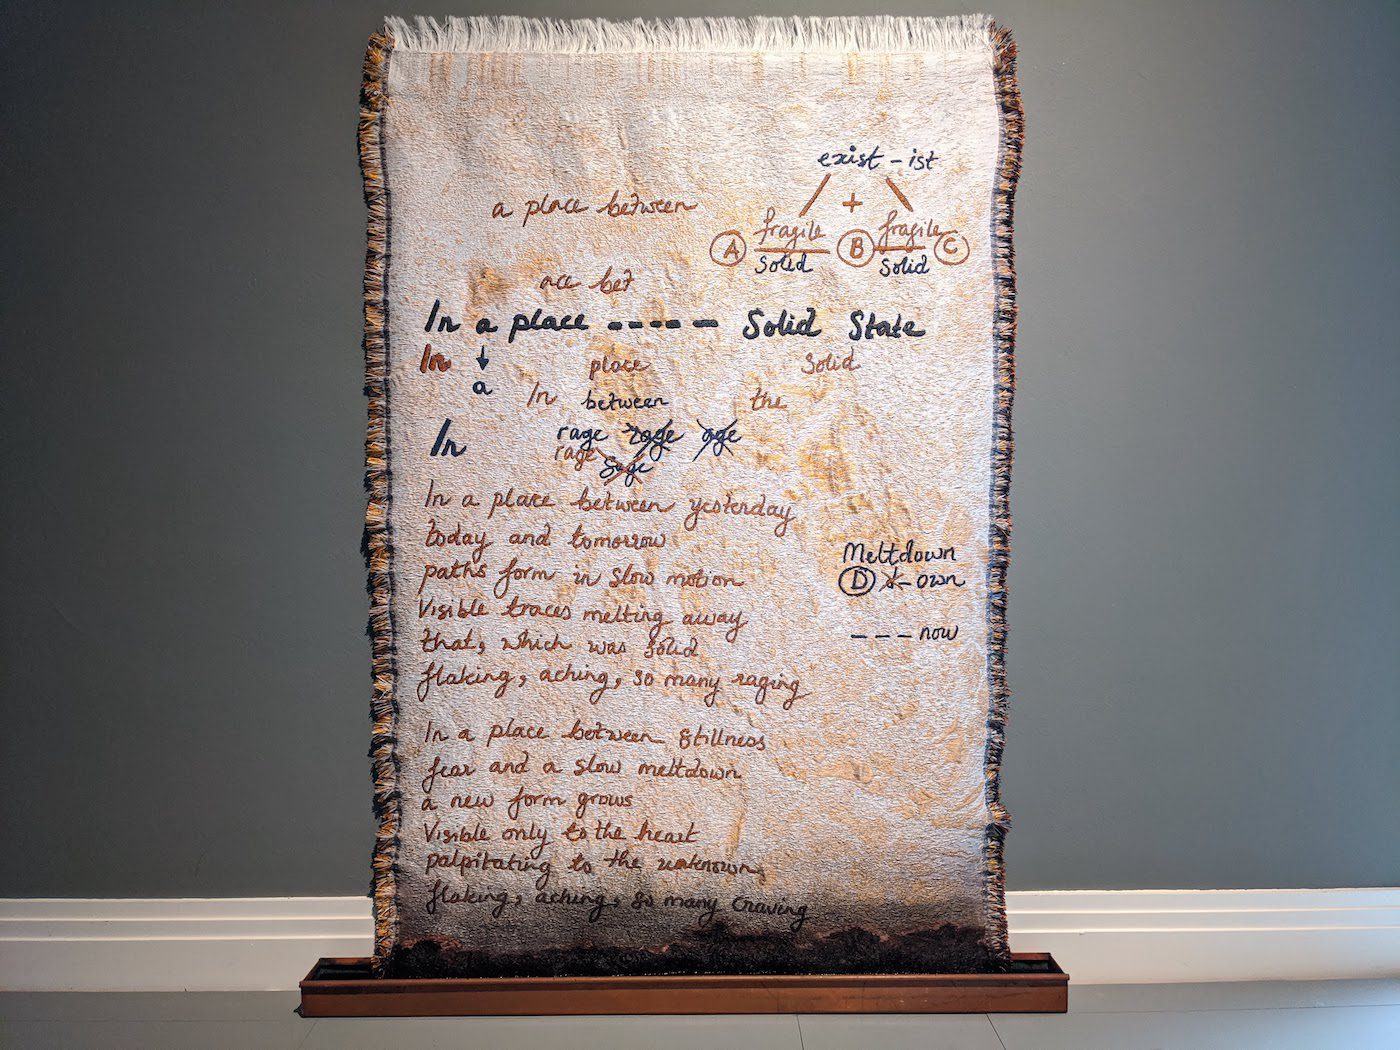 exist - ist
a place between
+
fragile fragile
A B C
solid solid
ace bet
In a place ----- Solid State
In place Solid
a In between the
In rage rage age
rage sage
In a place between yesterday
today and tomorrow
paths form in slow motion
Meltdown
D d - own
Visible traces melting away
--- now
that, which was solid
flaking, aching, so many raging
In a place between stillness
fear and a slow meltdown
a new form grows
Visible only to the heart
palpitating to the unknown,
flaking, aching, so many craving